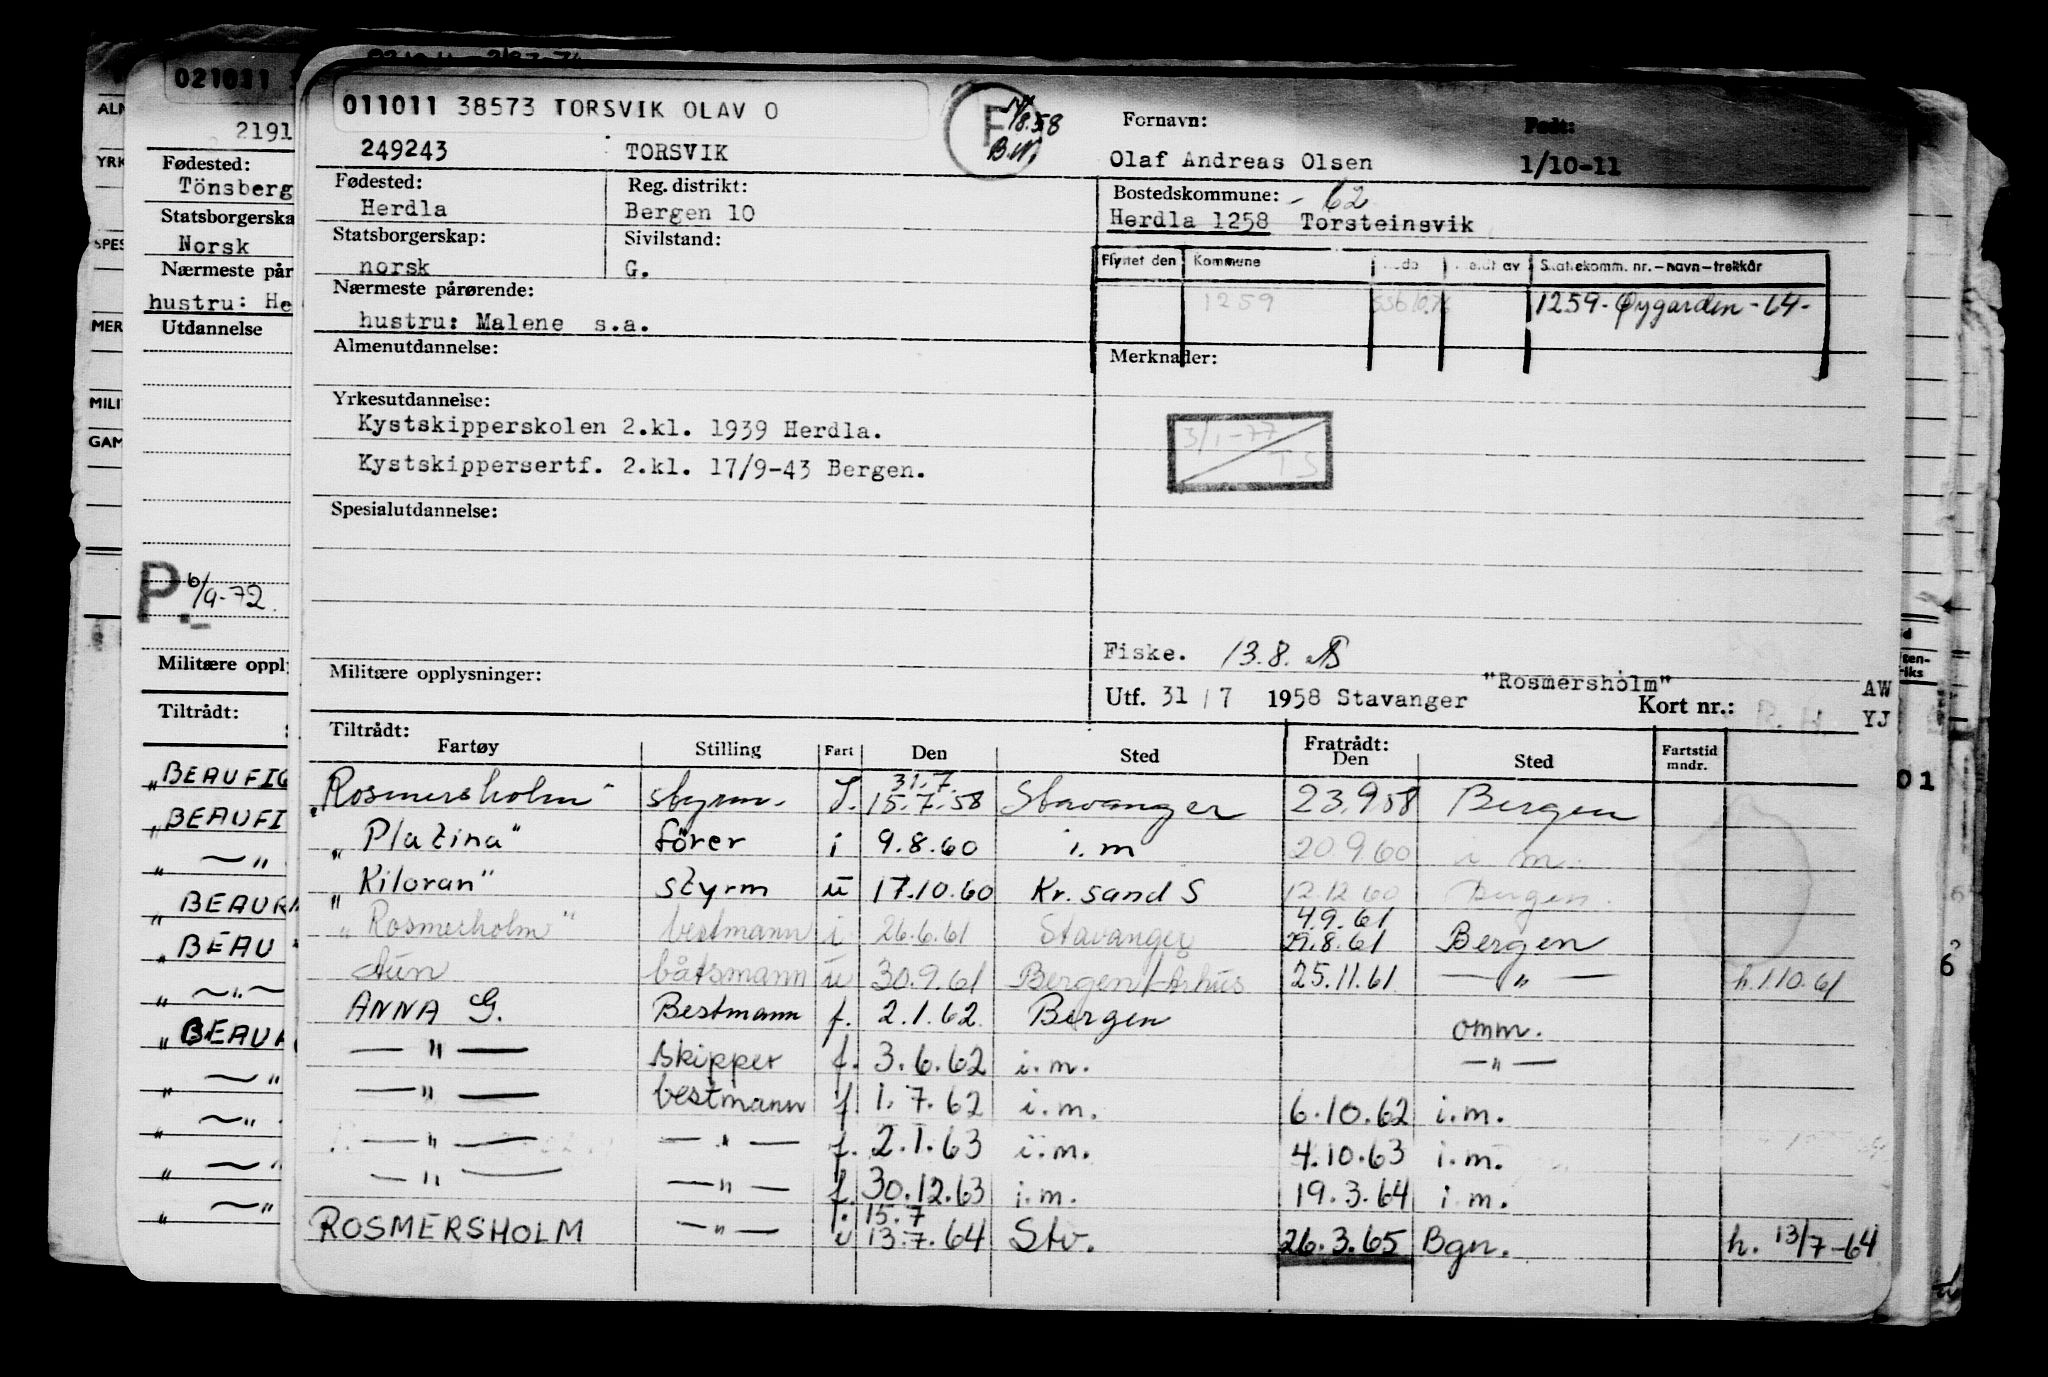 021011
2191
Fødested:
Tönsberg
Statsborgerska
Norsk
Nærmeste pår
hustru: He
Utdannelse
P. 6/9-72
Militære oppl
Tiltrådt:
"BEAUFIG
"BEAUFI
" — " 
"BEAU
"BEAU
" — " —
"BEAU
" — "
" — "
" — "
" — "
ALM
YRK
SPES
MER
MILI
GAM
011011 38573 TORSVIK OLAV O
F
8.58
B.N.
Fornavn:
Født:
249243 TORSVIK
Olaf Andreas Olsen 1/10-11
Fødested: Reg. distrikt:
Herdla Bergen 10
Bostedskommune: - 62
Herdla 1258 Torsteinsvik
Statsborgerskap: Sivilstand:
norsk G.
Flyttet den Kommune Skattekomm. nr.-navn-trekkår
1259 1259-Øygarden-64-
Nærmeste pårørende:
hustru: Malene s.a.
Almenutdannelse:
Merknader:
Yrkesutdannelse:
Kystskipperskolen 2.kl. 1939 Herdla.
Kystskippersertf. 2.kl. 17/9-43 Bergen.
3/1-77
TS
Spesialutdannelse:
Fiske. 13.8.
Militære opplysninger:
Utf. 31/7 1958 Stavanger "Rosmersholm"
Kort nr.:
AW
YJ
Tiltrådt: Fratrådt:
Fartøy Stilling Fart Den Sted Den Sted Fartstid mndr.
31.7.
"Rosmersholm" styrm. 15.7.58 Stavanger 23.9.58 Bergen
"Platina" förer i 9.8.60 i.m 20.9.60 i m.
"Kiloran" styrm u 17.10.60 Kr.sand S 12.12.60 Bergen.
4.9.61
"Rosmerholm" bestmann i 26.6.61 Stavanger 29.8.61 Bergen
Aun båtsmann u 30.9.61 Bergen/Århus 25.11.61 — " — h.1.10.61
ANNA G. Bestmann f. 2.1.62 Bergen omm.
— " — skipper f. 3.6.62 i.m. — " —
— " — bestmann f. 1.7.62 i.m. 6.10.62 i.m.
— " — — " — f. 2.1.63 i.m. 4.10.63 i.m.
— " — — " — f. 30.12.63 i.m. 19.3.64 i.m.
f. 15.7
ROSMERSHOLM — " — u 13.7.64 Stv. 26.3.65 Bgn. h. 13/7-64